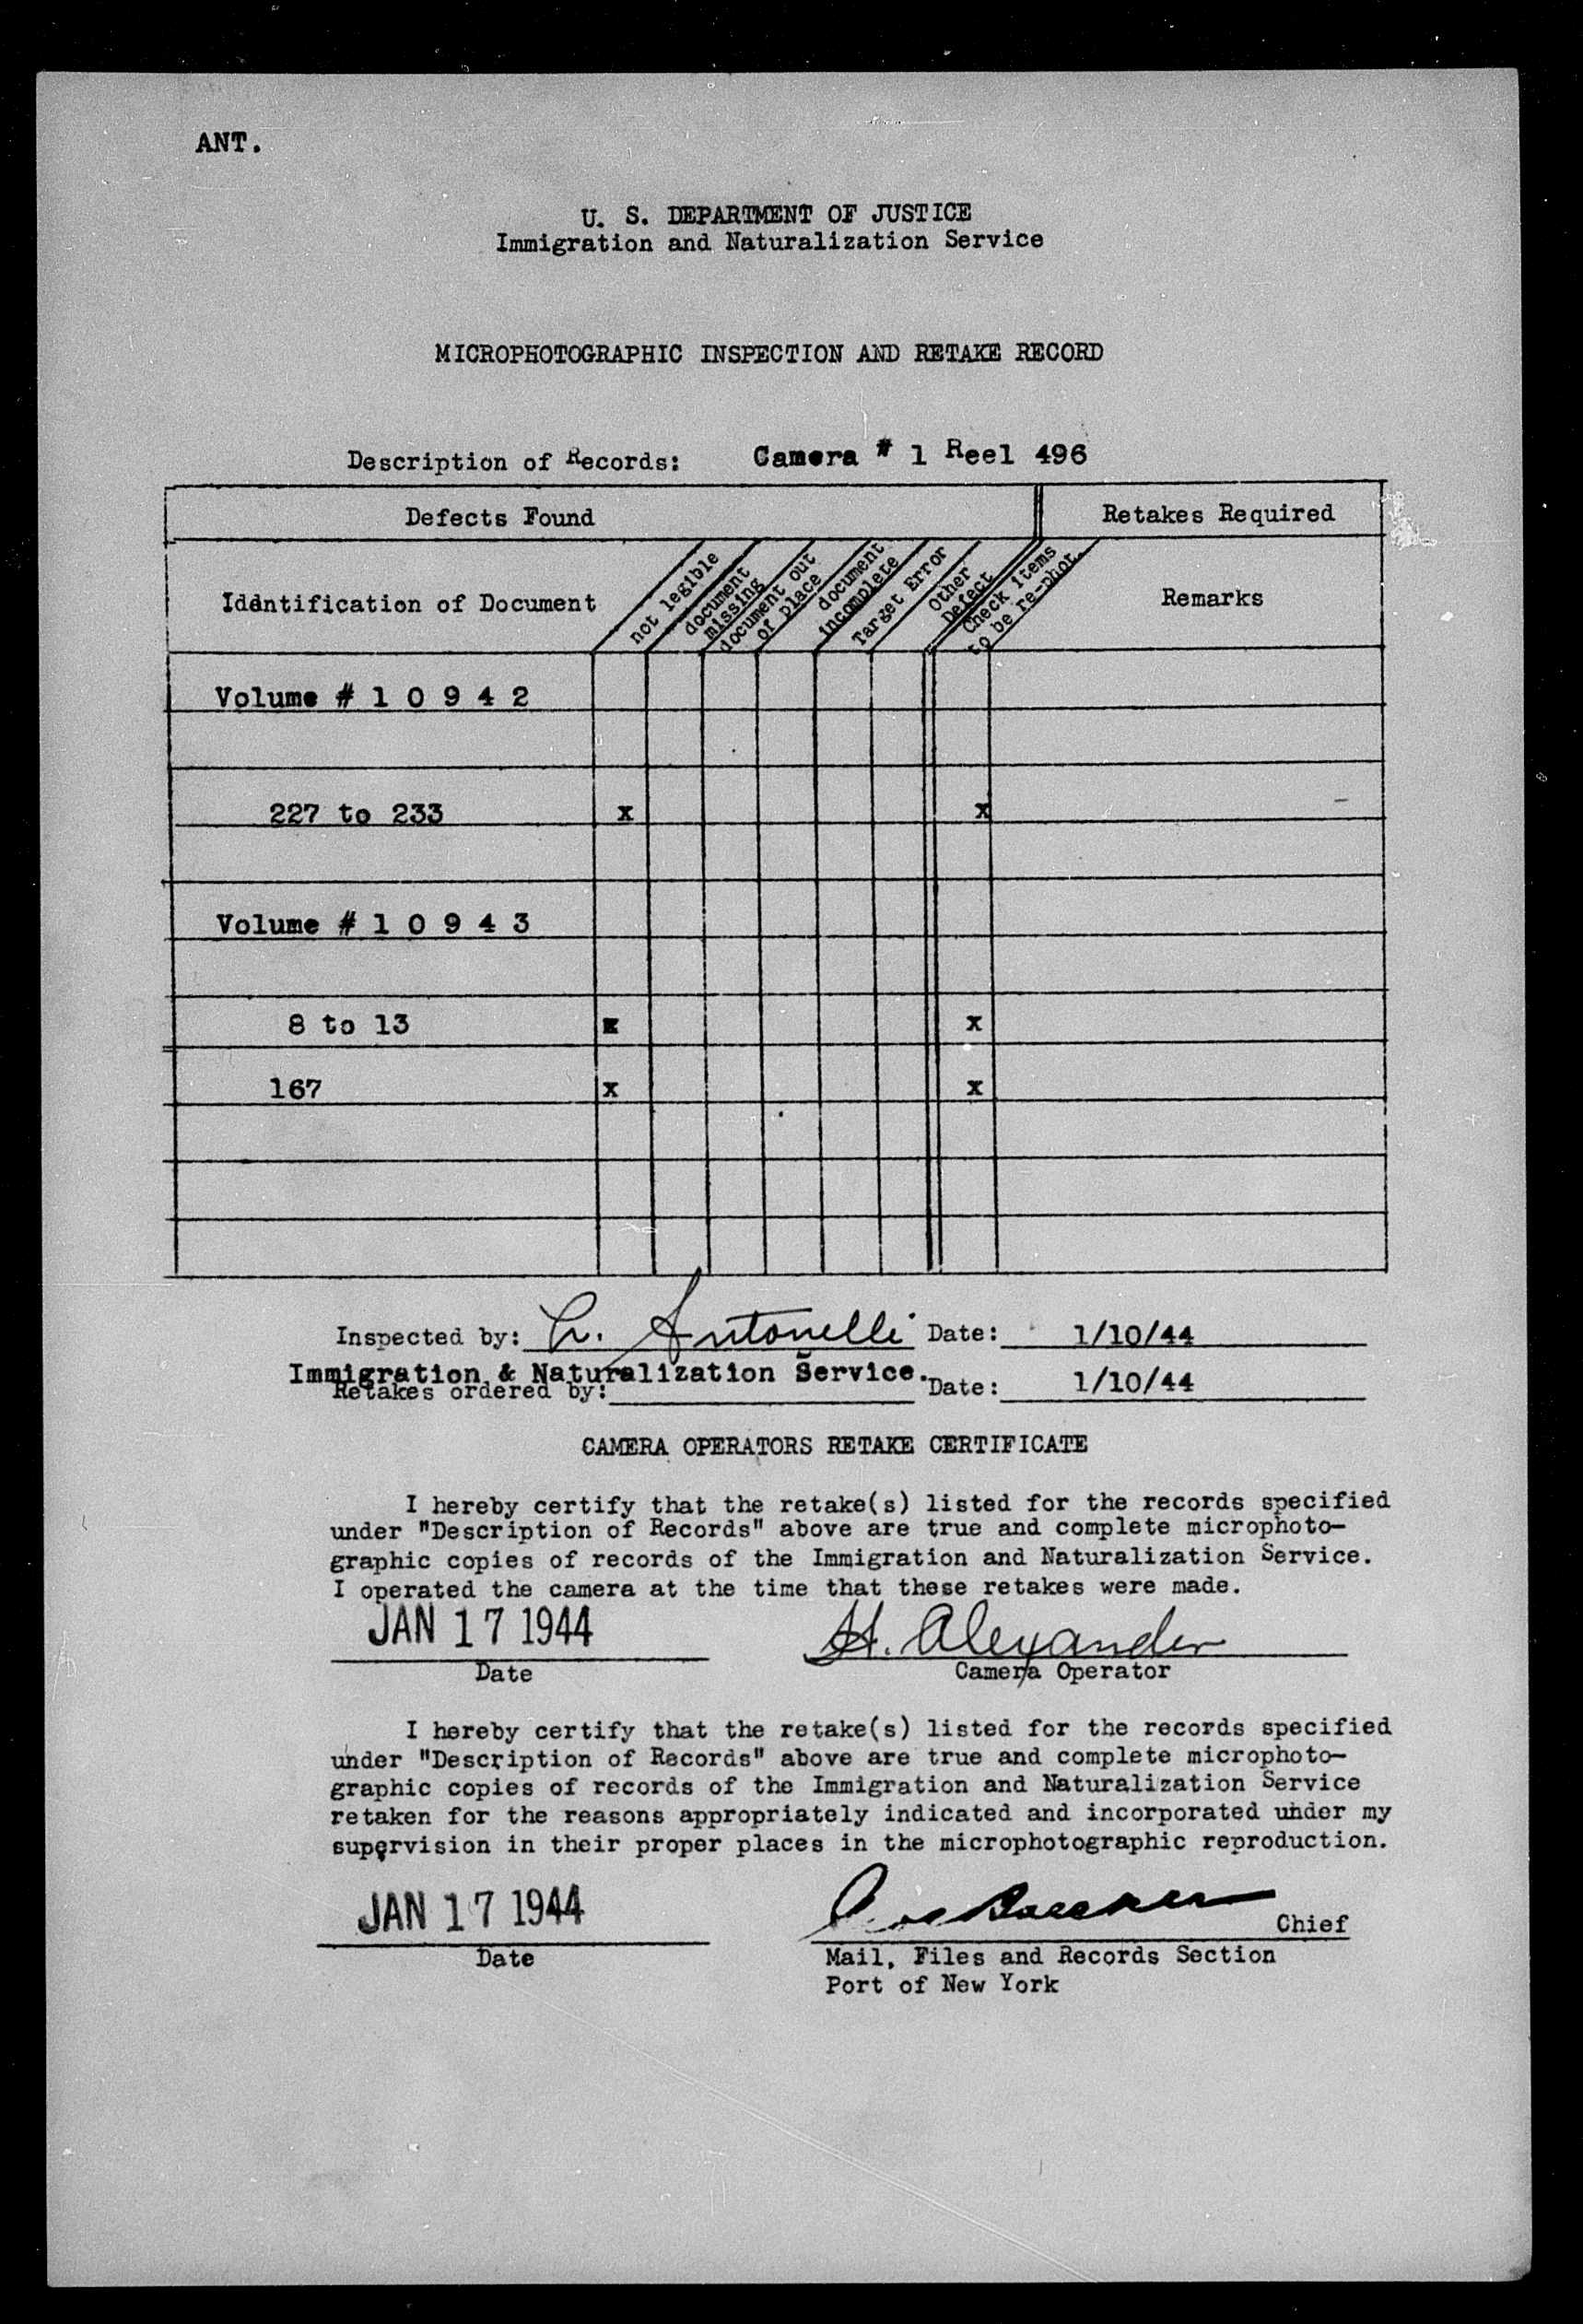 ANT.
U. S. DEPARTMENT OF JUSTICE
Immigration and Naturalization Service
MICROPHOTOGRAPHIC INSPECTION AND RETAKE RECORD
Description of Records: Camera # 1 Reel 496
Defects Found Retakes Required
Idántification of Document
not legible
document
missing
document out
of place
document
incomplete
Target Error
Other
Defect
Check items
to be re-phot.
Remarks
Volume # 1 0 9 4 2
227 to 233 x x
Volume # 1 0 9 4 3
8 to 13 x x
167 x x
Inspected by: Antonelli Date: 1/10/44
Immigration & Naturalization Service.
Retakes ordered by: Date: 1/10/44
CAMERA OPERATORS RETAKE CERTIFICATE
I hereby certify that the retake(s) listed for the records specified
under "Description of Records" above are true and complete microphoto-
graphic copies of records of the Immigration and Naturalization Service.
I operated the camera at the time that these retakes were made.
JAN 17 1944 H. Alexander
Date Camera Operator
I hereby certify that the retake(s) listed for the records specified
under "Description of Records" above are true and complete microphoto-
graphic copies of records of the Immigration and Naturalization Service
retaken for the reasons appropriately indicated and incorporated under my
supervision in their proper places in the microphotographic reproduction.
JAN 17 1944 Chief
Date Mail, Files and Records Section
Port of New York